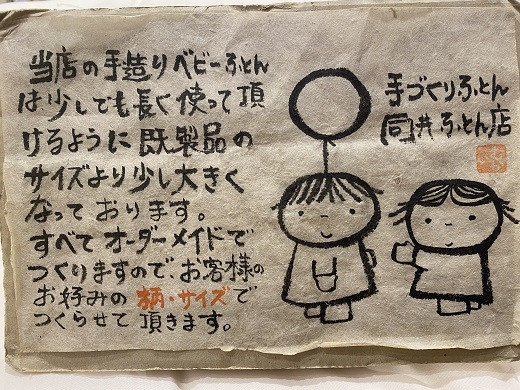 当店の手造りベビーふとん
は少しでも長く使って頂
けるように既製品の
サイズより少し大きく
なっております。
すべてオーダーメイドで
つくりますので、お客様の
お好みの柄・サイズで
つくらせて頂きます。
手づくりふとん
向井ふとん店